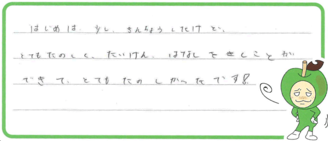 はじめは、少し、きんちょうしたけど、
とてもたのしく、たいけん、はなしをきくことが
できて、とてもたのしかったです!!